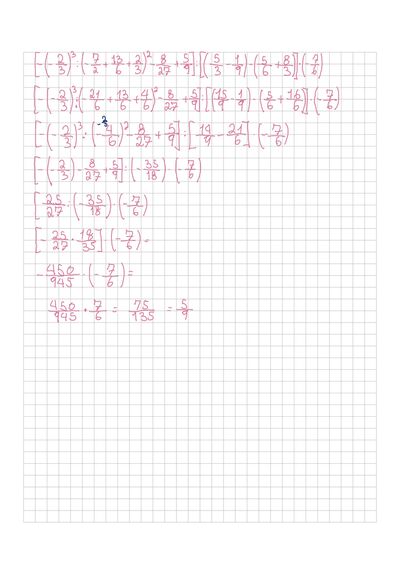 [-(-2/3)³:(-7/2+13/6+2/3)²-8/27+5/9]:[(5/3-1/9)-(5/6+8/3)]·(-7/6)
[-(-2/3)³:(-21/6+13/6+4/6)²-8/27+5/9]:[(15/9-1/9)-(5/6+16/6)]·(-7/6)
[-(-2/3)³:(-4/6)²-8/27+5/9]:[14/9-21/6]·(-7/6)
[-(-2/3)-8/27+5/9]:(-35/18)·(-7/6)
[25/27:(-35/18)·(-7/6)
[-25/27·18/35]·(-7/6)=
-450/945·(-7/6)=
450/945·7/6=75/135=5/9